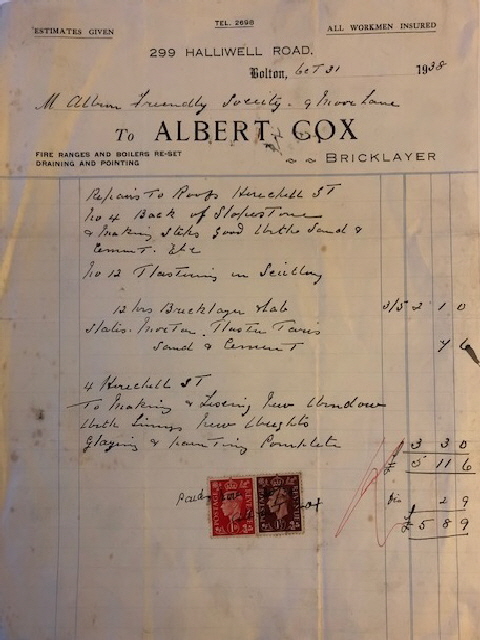 TEL. 2698
ESTIMATES GIVEN
ALL WORKMEN INSURED
299 HALLIWELL ROAD.
Bolton, Oct 31 1938
M Albion Friendly Society. 9 Moor Lane
To ALBERT COX
FIRE RANGES AND BOILERS RE-SET
DRAINING AND POINTING
BRICKLAYER
Repairs To Roofs Herschell ST
No 4 Back of Slopestone
& Making Steps good With Sand &
Cement. Etc
No 12 Plastering in Scullery
12 hrs Bricklayer & Lab 3/5 2 1 0
Slates. Mortar. Plaster
Sand & Cement 7 6
4 Herschell ST
To Making & Fixing New Window
With Linings New Weights
Glazing & Painting Complete 3 3 0
£ 5 11 6
Dis 2 9
£ 5 8 9
Paid
POSTAGE REVENUE
1D
POSTAGE REVENUE